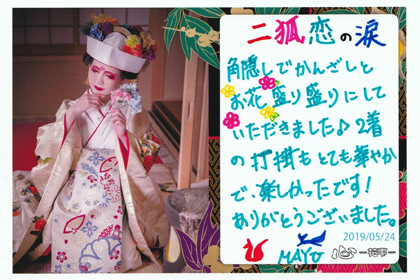 二狐恋の涙
角隠しでかんざしと
お花盛り盛りにして
いただきました♪2着
の打掛もとても華やか
で、楽しかったです!
ありがとうございました。
2019/05/24
MAYU